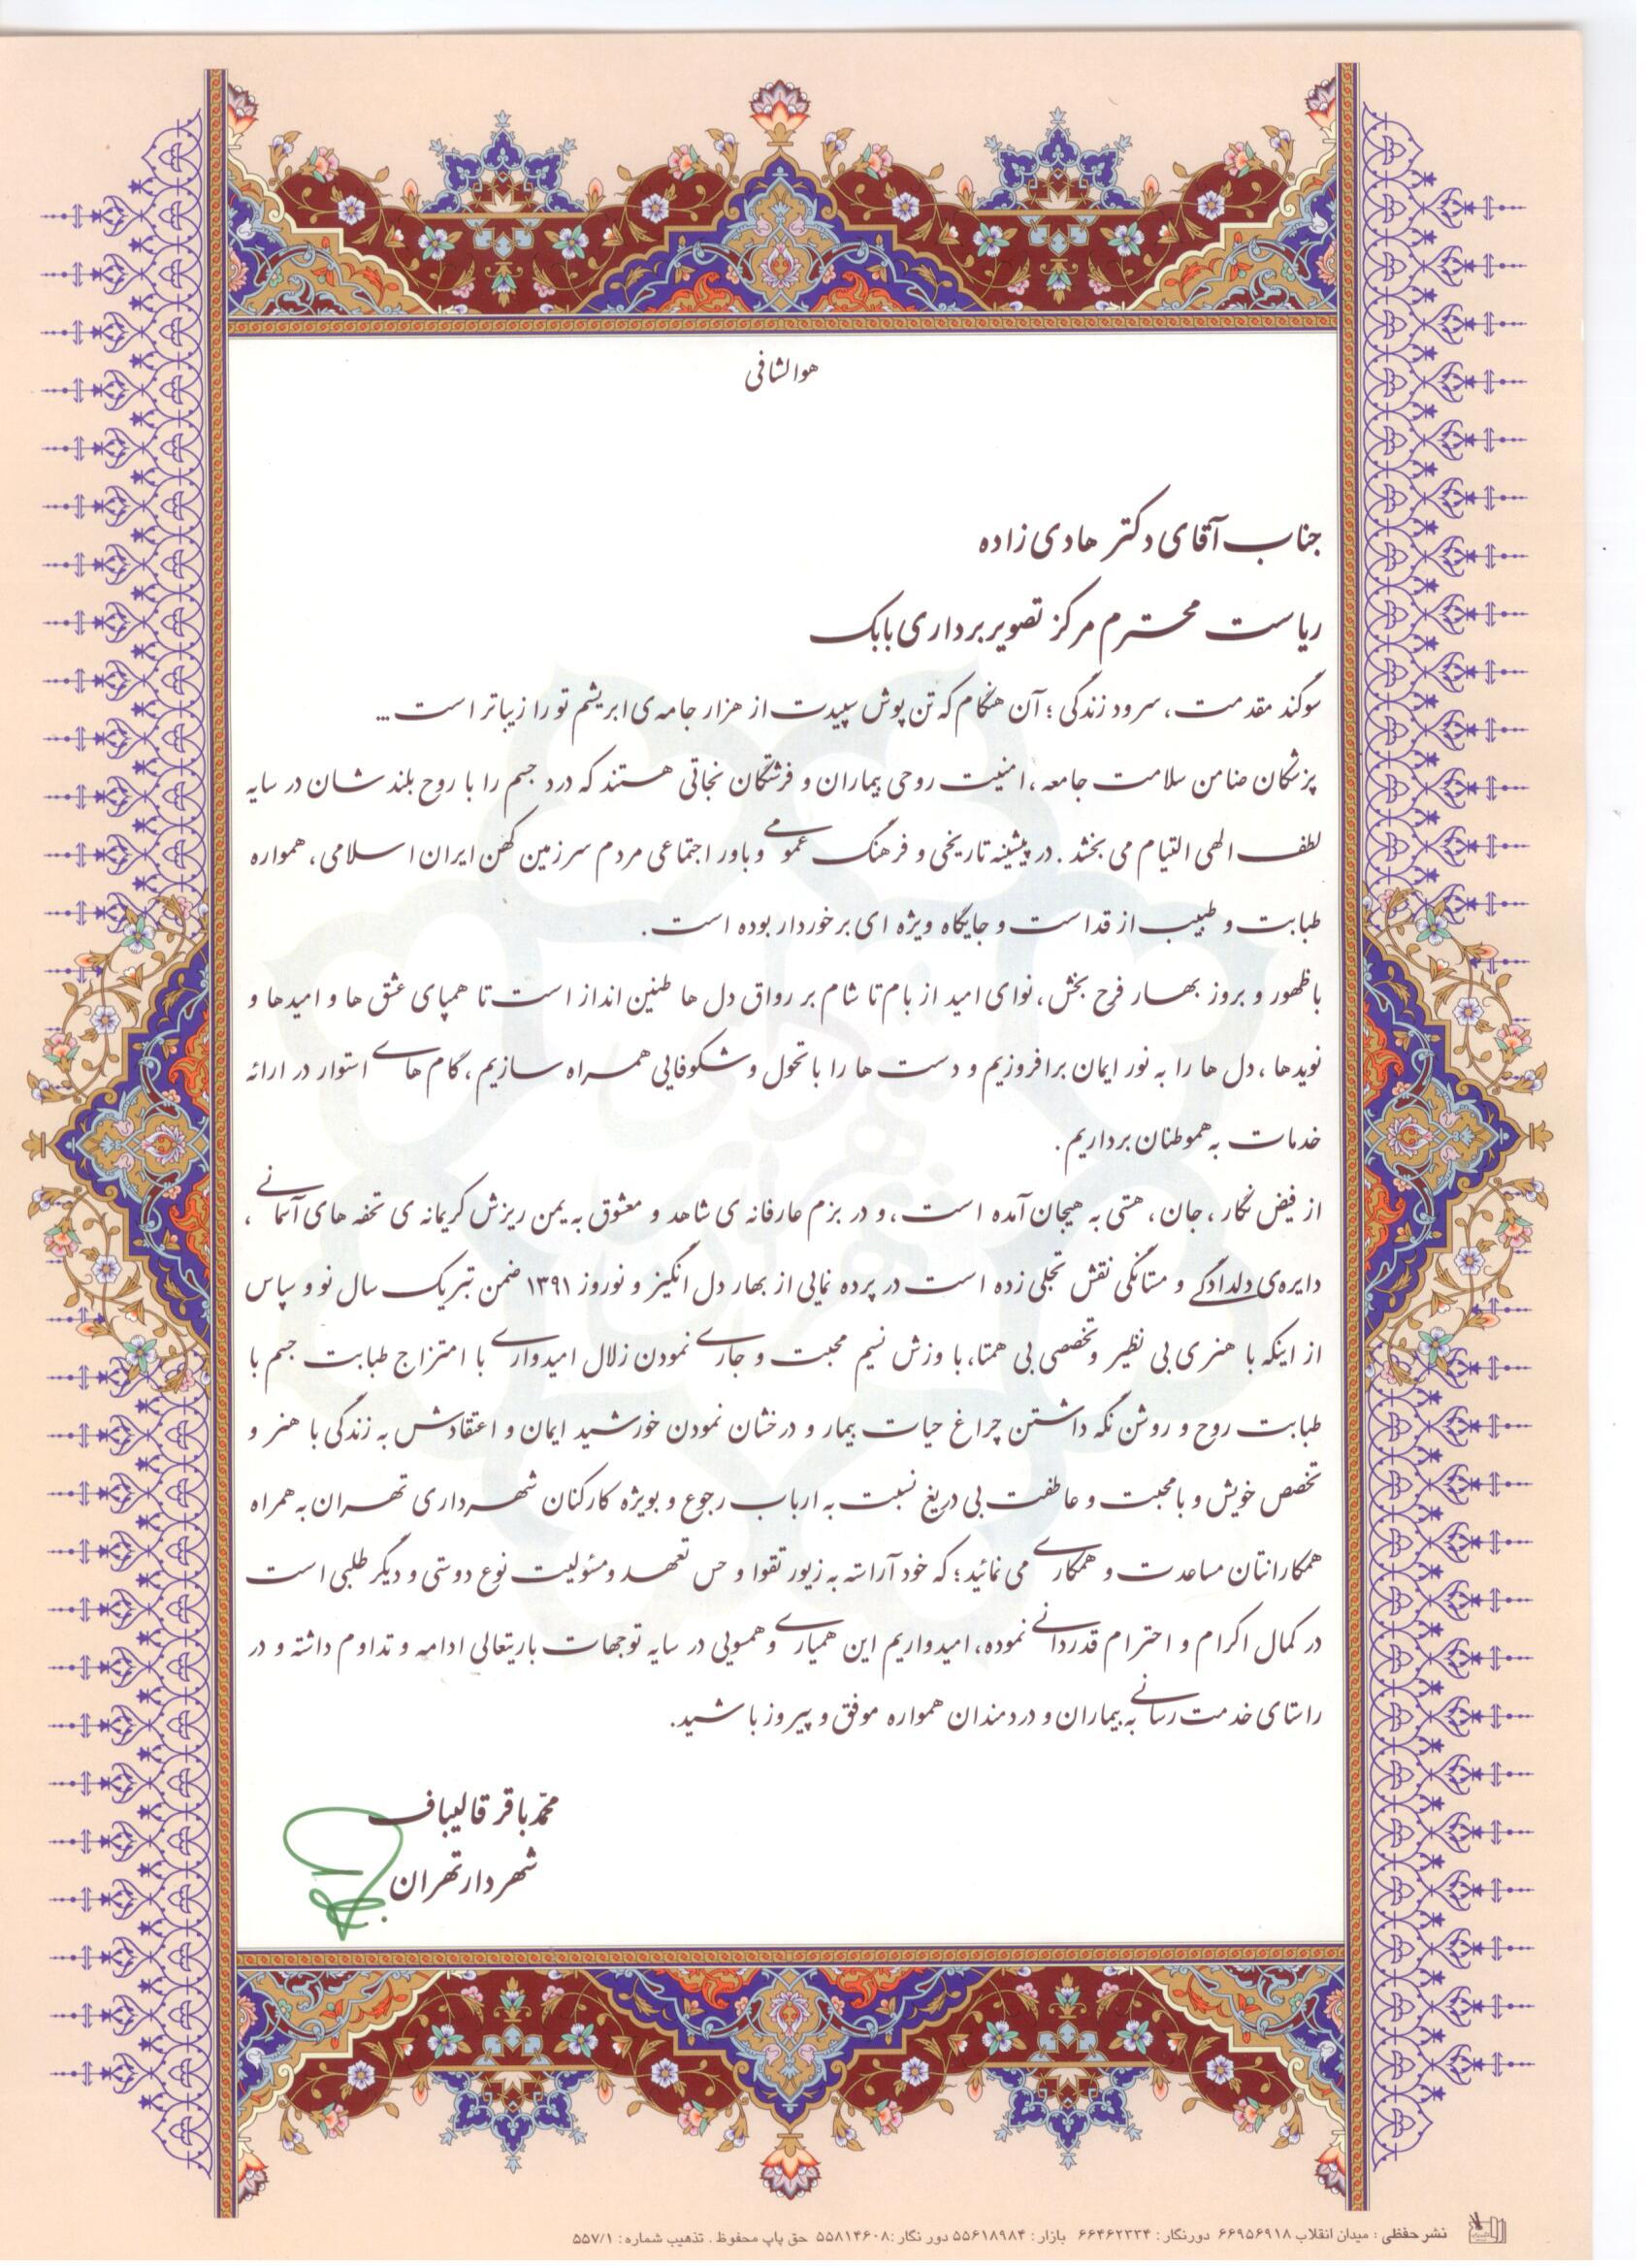 هوالشافی
جناب آقای دکتر هادی زاده
ریاست محترم مرکز تصویربرداری بابک
سوگند مقدمت، سرود زندگی؛ آن هنگام که تن پوش سپیدت از هزار جامه ی ابریشم تو را زیباتر است...
پزشکان ضامن سلامت جامعه، امنیت روحی بیماران و فرشتگان نجاتی هستند که درد جسم را با روح بلندشان در سایه
لطف الهی التیام می بخشد. در پیشینه تاریخی و فرهنگ عمومی و باور اجتماعی مردم سرزمین کهن ایران اسلامی، همواره
طبابت و طبیب از قداست و جایگاه ویژه ای برخوردار بوده است.
با ظهور و بروز بهار فرح بخش، نوای امید از بام تا شام بر رواق دل ها طنین انداز است تا همپای عشق ها و امیدها و
نویدها، دل ها را به نور ایمان برافروزیم و دست ها را با تحول و شکوفایی همراه سازیم، گام های استوار در ارائه
خدمات به هموطنان برداریم.
از فیض نگار، جان، هستی به هیجان آمده است، و در بزم عارفانه ی شاهد و معشوق به یمن ریزش کریمانه ی تحفه های آسمانی،
دایره ی دلدادگی و مستانگی نقش تجلی زده است در پرده نمایی از بهار دل انگیز و نوروز ۱۳۹۱ ضمن تبریک سال نو و سپاس
از اینکه با هنری بی نظیر و تخصصی بی همتا، با وزش نسیم محبت و جاری نمودن زلال امیدواری با امتزاج طبابت جسم با
طبابت روح و روشن نگه داشتن چراغ حیات بیمار و درخشان نمودن خورشید ایمان و اعتقادش به زندگی با هنر و
تخصص خویش و با محبت و عاطفت بی دریغ نسبت به ارباب رجوع و بویژه کارکنان شهرداری تهران به همراه
همکارانتان مساعدت و همکاری می نمائید؛ که خود آراسته به زیور تقوا و حس تعهد و مسئولیت نوع دوستی و دیگر طلبی است
در کمال اکرام و احترام قدردانی نموده، امیدواریم این همیاری و همسویی در سایه توجهات باریتعالی ادامه و تداوم داشته و در
راستای خدمت رسانی به بیماران و دردمندان همواره موفق و پیروز باشید.
محمّدباقر قالیباف
شهردار تهران
نشر حفظی : میدان انقلاب ۶۶۹۵۶۹۱۸ دورنگار : ۶۶۴۶۲۳۳۴ بازار : ۵۵۶۱۸۹۸۴ دور نگار :۵۵۸۱۴۶۰۸ حق چاپ محفوظ . تذهیب شماره : ۵۵۷/۱